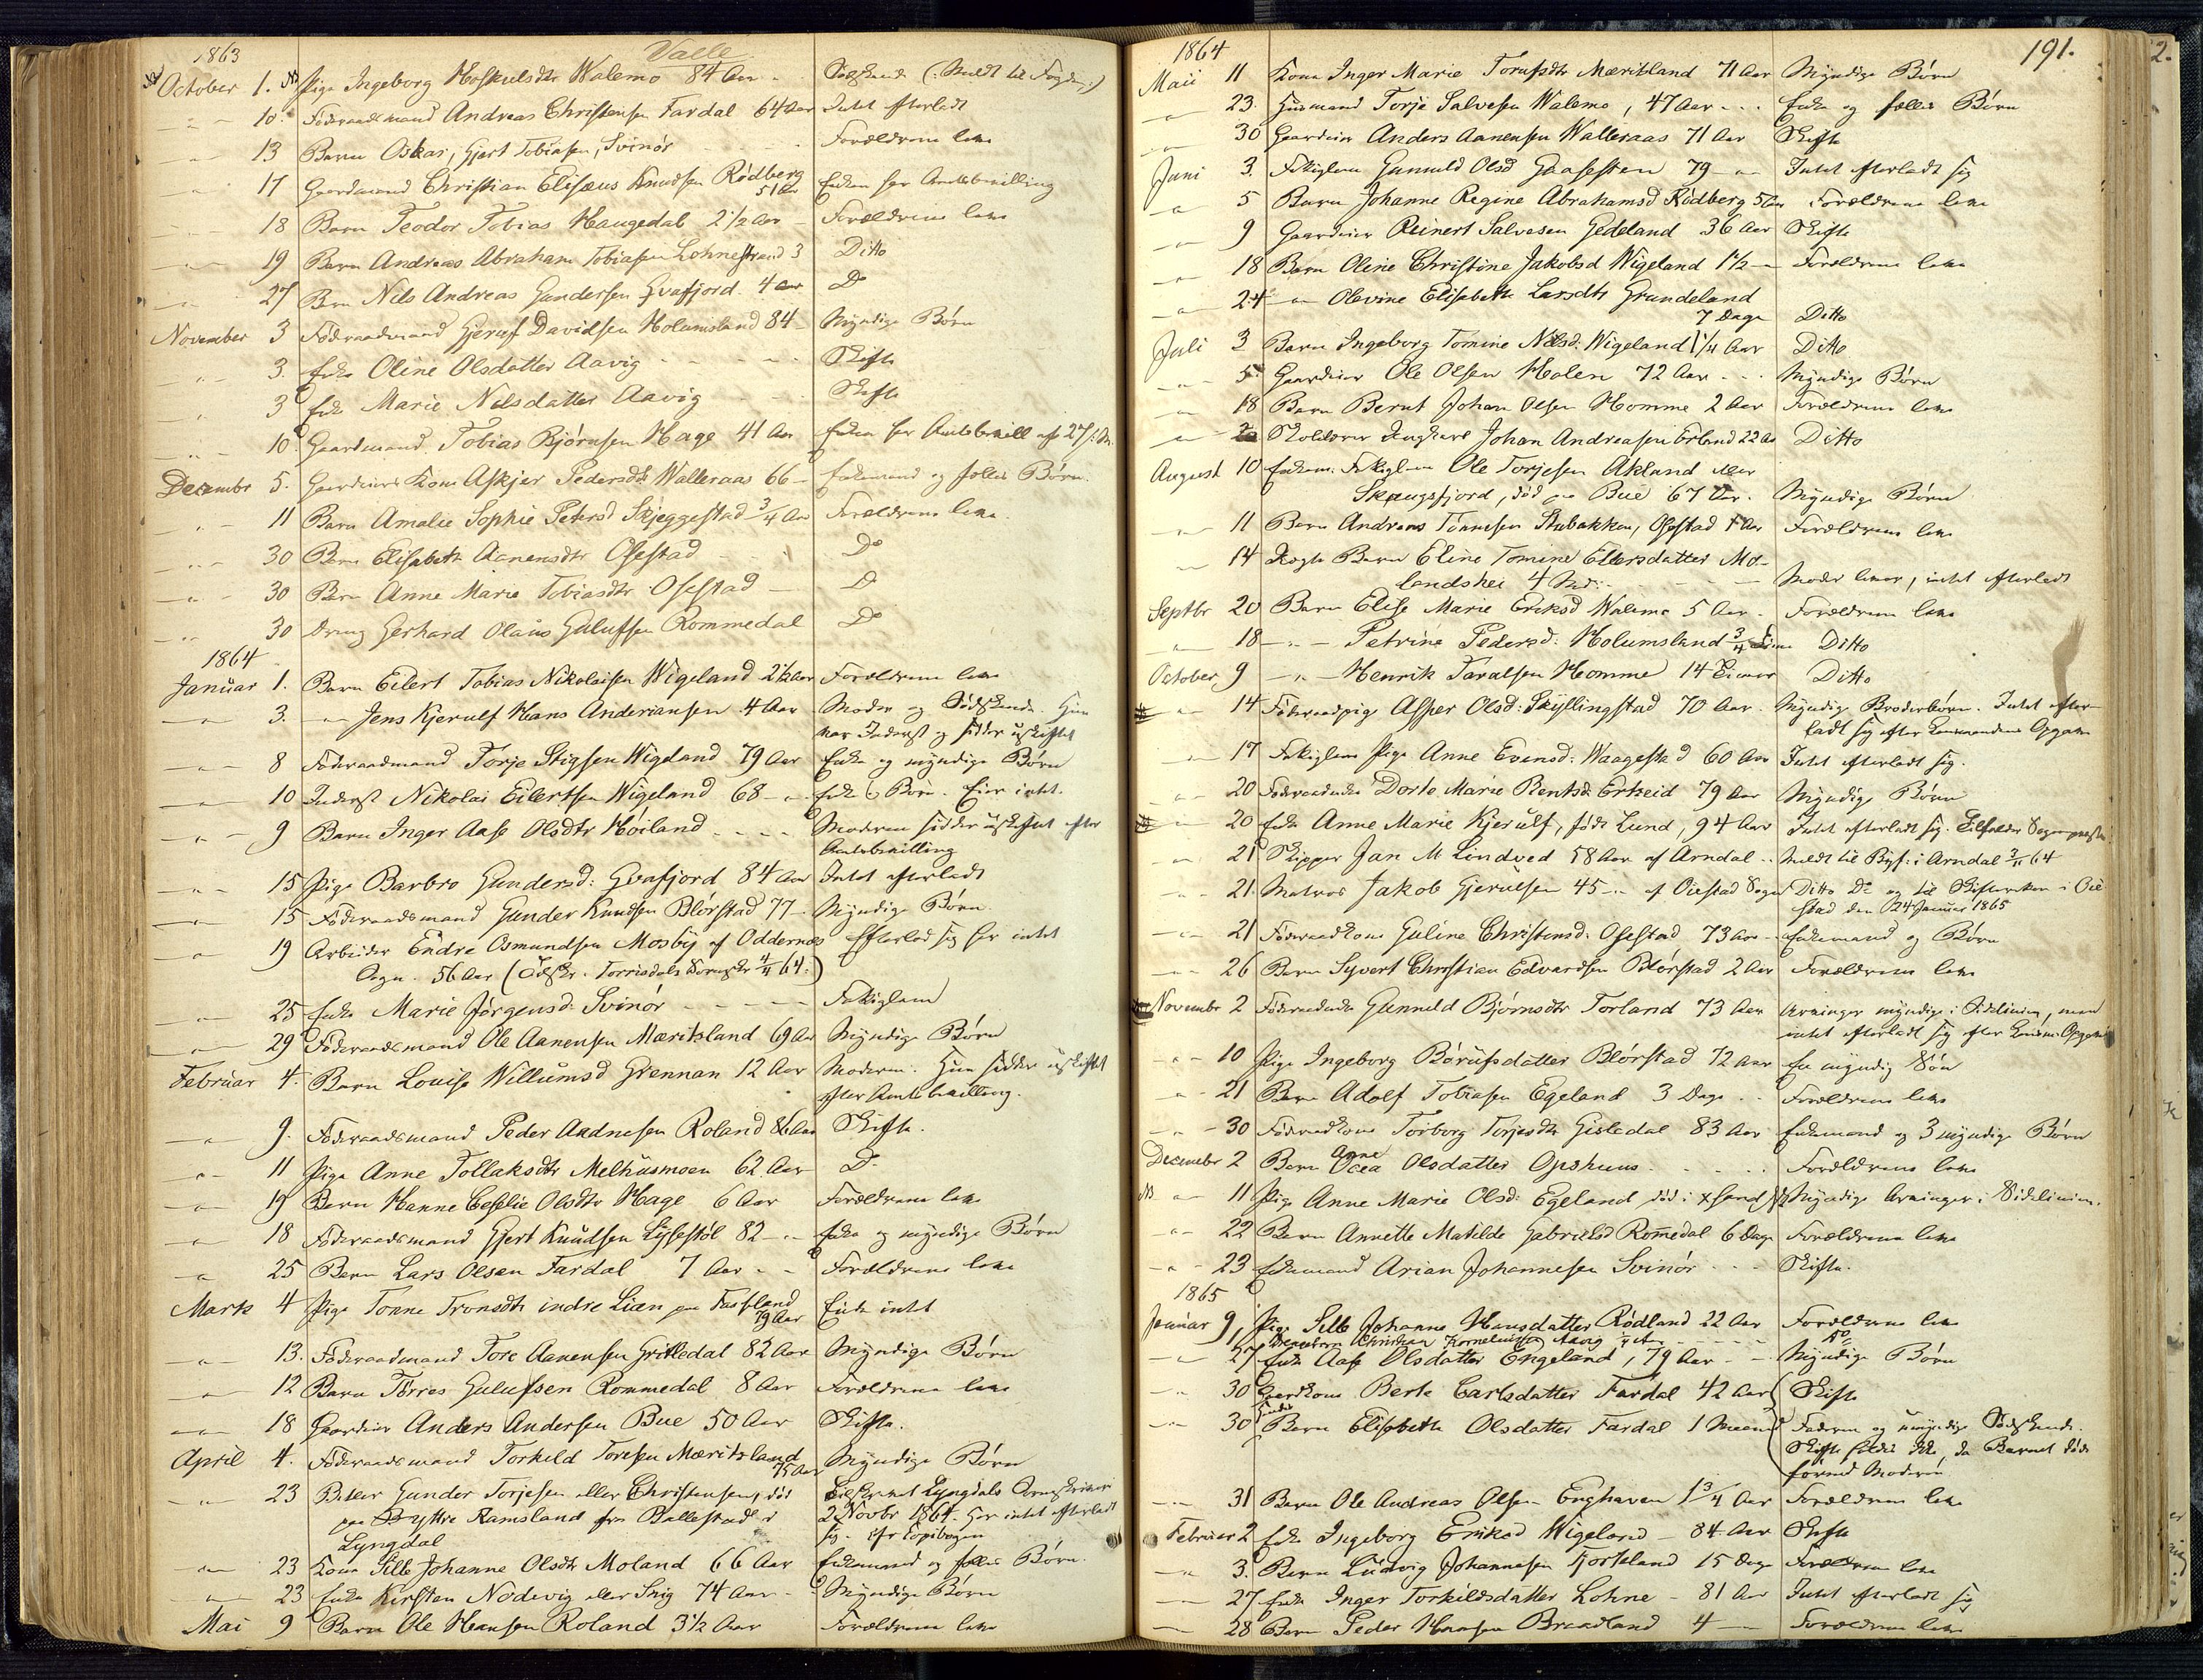 1863
Valle
October 1. Pige Ingeborg Hoskulsdtr Walemo 84 Aar - Sødskende (: Meldt til Fogden :)
10. Føderaadsmand Andreas Christensen Fardal 64 Aar Intet efterladt
13 Barn Oskar, Gjert Tobiasen, Svinør Forældrene leve
17 Gaardmand Christian Elisæus Knudsen Rødberg Enken har Amtsbevilling
51 Aar
18 Barn Teodor Tobias Haugedal 2 1/2 Aar - Forældrene leve
19 Barn Andreas Abraham Tobiasen Lohnestrand 3 Ditto
27 Brn Nils Andreas Gundersen Gvafjord 4 Aar Do
November 3 Føderaadmand Gjeruf Davidsen Holumsland 84 - Myndige Børn
3. Enke Oline Olsdatter Aavig - - - Skifte
3 Enke Marie Nilsdatter Aavig - - Skifte
10 Gaardmand Tobias Bjørnsen Hage 41 Aar Enken har Amtsbevill af 27/
Decembr 5. Gaardmands Kone Askjer Pedersdtr Walleraas 66 - Enkemand og fælles Børn.
11 Barn Amalie Sophie Petersd Skjeggestad 3/4 Aar Forældrene leve
30 Barn Elisabeth Aanensdtr Ofestad - Do
30 Barn Anne Marie Tobiasdtr Ofestad - D
30 Dreng Gerhard Olaus Gulufsen Rommedal Do
1864
Januar 1. Barn Eilert Tobias Nikolaisen Wigeland 2 1/2 Aar Forældrene leve
3. - " - Jens Kjerulf Hans Anderiansen 4 Aar Moder og Sødskende. Hun
har Inderst og sidder uskiftet
8 Føderaadmand Torje Stigsen Wigeland 79 Aar Enke og myndige Børn
10 Inderst Nikolai Eilertsen Wigeland 68 - " Enke & Børn. Eier intet.
9 Barn Inger Aase Olsdtr Høiland - - - - Moderen sidder uskiftet efter
Amtsbevilling
15 Pige Barbro Gundersd: Gvafjord 84 Aar Intet efterladt
15 Føderaadsmand Gunder Knudsen Blørstad 77 - Myndige Børn.
19 Arbeider Endre Osmundsen Mosby af Oddernæs Efterlod sig her intet
Sogn. 56 Aar (Udskr. Torrisdals Sorenskr 4/4 64.)
25 Enke Marie Jørgensd: Svinør - - - - Fattiglem
29 Føderaadsmand Ole Aanensen Mæritsland 69 Aar Myndige Børn
Februar 4. Barn Louise Willumsd Grennan 12 Aar Moderen. Hun sidder uskiftet
efter Amtsbevilling.
9. Føderaadsmand Peder Andnesen Roland 86 Aar Skifte.
11 Pige Anne Tollaksdtr Melhusmoen 62 Aar D.
19 Barn Hanne Ceselie Olsdtr Hage 6 Aar Forældrene leve
18 Føderaadsmand Gjert Knudsen Lyssestøl 82 - " - Enke og myndige Børn
25 Barn Lars Olsen Fardal 7 Aar - - Forældrene leve
Marts 4 Pige Tonne Tronsdtr indre Lien paa Fasseland Eiede intet
79 Aar
13. Føderaadmand Tore Aanensen Grikledal 82 Aar Myndige Børn
12 Barn Tørres Gulufsen Rommedal 8 Aar Forældrene leve
18 Gaardeier Anders Andersen Bue 50 Aar Skifte.
April 4. Føderaadsmand Torkeld Toresen Mæritsland Myndige Børn
75 Aar
23 Betler Gunder Torjesen eller Christensen, død Tilskrevet Lyngdals Sorenskriver
paa Ramsland fra Ballestad i 2 Novbr 1864. Har intet efterladt
Lyngdal sig. Efr Copibogen
23 Kone Sille Johanne Olsdtr Moland 66 Aar Enkemand og fælles Børn.
23 Enke Kirsten Nodevig eller Snig 74 Aar - - Myndige Børn
Mai 9 Barn Ole Hansen Roland 3 1/2 Aar Forældrene leve
1864
191.
Maii 11 Kone Inger Marie Torufsdtr Mæritsland 71 Aar Myndige Børn
23. Huusmand Torje Salvesen Walemo, 47 Aar - - - Enke og fælles Børn
30 Gaardeier Anders Aanensen Walleraas 71 Aar Skifte
Juni 3. Fattiglem Gunnuld Olsd Gaasesteen 79 - " Intet efterladt sig
5 Barn Johanne Regine Abrahamsd Rødberg 5 Aar Forældrene leve
9 Gaardeier Reinert Salvesen Gedeland 36 Aar Skifte
18 Barn Oline Christine Jakobsd Wigeland 1 1/2 - Forældrene leve
24 - " Olevine Elisabeth Larsdtr Grundeland
7 Dage Ditto
Juli 3 Barn Ingeborg Tomine Nilsd: Wigeland 1 1/4 Aar Ditto
5. Gaardeier Ole Olsen Holen 72 Aar - - - Myndige Børn
18 Barn Bernt Johan Olsen Homme 2 Aar Forældrene leve
20 Skolelærer Ungkarl Johan Andreasen Erland 22 Aar Ditto
August 10 Enkem: Fattiglem Ole Torjesen Akland eller
Skougsfjord, død paa Bue 67 Aar. Myndige Børn
11 Barn Andreas Tønnesen Stubakken, Ofestad 1 Aar Forældrene leve
14 Uægte Barn Eline Tomine Ellersdatter Mo-
landshei 4 Md: - - - - Moder lever, intet efterladt
Septbr 20 Barn Elise Marie Eriksd Walemo 5 Aar - Forældrene leve
18 - " - Petrine Pedersd: Holumsland 3/4 Time Ditto
October 9 - " - Henrik Taralsen Homme 14 Timer Ditto
14 Føderaadpige Asper Olsd: Skyllingstad 70 Aar. Myndig Broderbørn. Intet efter-
ladt sig efter Lensmandens Opgave
17 Fattiglem Pige Anne Evensd: Waagestad 60 Aar Intet efterladt sig.
20 Føderaadenke Dorte Marie Rentsd: Ertzeid 79 Aar Myndige Børn
20 Enke Anne Marie Kjerulf, født Lund, 94 Aar Intet efterladt sig. Tilfalder Sognepræsten
21 Skipper Jan M Lindved 58 Aar af Arndal - - Meldt til Byf: i Arndal 3/11 64
21. Matros Jakob Gjerulsen 45 - " af Oiestad Sogn Ditto Do og til Skifteretten i Oie
stad den 24 Januar 1865
21 Føderaadkone Guline Christensd: Ofestad 73 Aar - Enkemand og Børn
26 Barn Syvert Christian Edvardsen Blørstad 2 Aar Forældrene leve
Novembr 2 Føderaadenke Gunnuld Bjørnsdtr Torland 73 Aar Arvinger myndige i Sidelinien, men
intet efterladt sig efter Lensm: Opgave
10 Pige Ingeborg Børufsdatter Blørstad 72 Aar En myndig Søn
21 Barn Adolf Tobiasen Egeland 3 Dage - - Forældrene leve
30 Føderaadkone Torborg Torjesdtr Gisledal 83 Aar Enkemand og 3 myndige Børn
Anne
Decembr 2 Barn Ocea Olsdatter Opshuus - - - - Forældrene leve
11 Pige Anne Marie Olsd: Egeland død i Xsand Myndige Arvinger i Sidelinien.
22 Barn Annette Matilde Gabrielsd Rom̄edal 6 Dage Forældrene leve
23 Enkemand Arian Johannesen Svinør - - - Skifte.
1865
Januar 9, Pige Sille Johanne Hansdatter Rødland 22 Aar Forældrene leve
Christian Kornelius Aavig Do
27 Enke Aase Olsdatter Engeland, 79 Aar - - Myndige Børn
30 Gaardkone Berte Carlsdatter Fardal 42 Aar Skifte
30 Barn Elisbeth Olsdatter Fardal 1 Maaned Faderen og umyndige Sødskende.
Skifte holdes ikke, da Barnet døde
førend Moderen
31 Barn Ole Andreas Olsen Enghaven 1 3/4 Aar Forældrene leve
Februar 2 Enke Ingeborg Eriksd Wigeland - 84 Aar Skifte
3. Barn Ludvig Johannesen Torkeland 15 Dage Forældrene leve
27 Enke Inger Torkildsdatter Lohne - 81 Aar Intet efterladt sig
28 Barn Peder Hansen Breadland 4 - - Forældrene leve